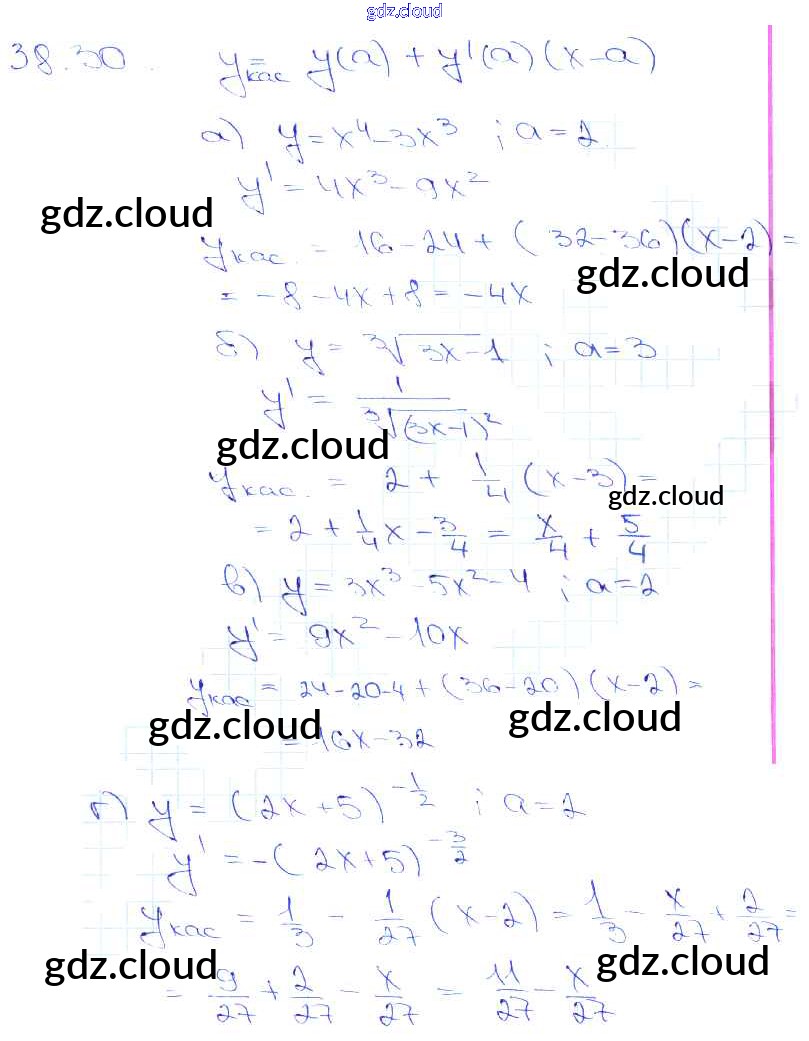 gdz.cloud
38.30. y кас = y(a) + y'(a)(x-a)
а) y = x⁴-3x³ ; a=2
y' = 4x³-9x²
gdz.cloud
y кас. = 16-24+(32-36)(x-2) =
gdz.cloud
= -8-4x+8 = -4x
б) y = ∛(3x-1) ; a=3
y' = 1/∛(3x-1)²
gdz.cloud
y кас. = 2 + 1/4 (x-3) =
gdz.cloud
= 2 + 1/4 x - 3/4 = x/4 + 5/4
в) y = 3x³-5x²-4 ; a=2
y' = 9x²-10x
y кас = 24-20-4+(36-20)(x-2) =
gdz.cloud gdz.cloud
= 16x-32
г) y = (2x+5)^(-1/2) ; a=2
y' = -(2x+5)^(-3/2)
y кас = 1/3 - 1/27 (x-2) = 1/3 - x/27 + 2/27 =
gdz.cloud gdz.cloud
= 9/27 + 2/27 - x/27 = 11/27 - x/27